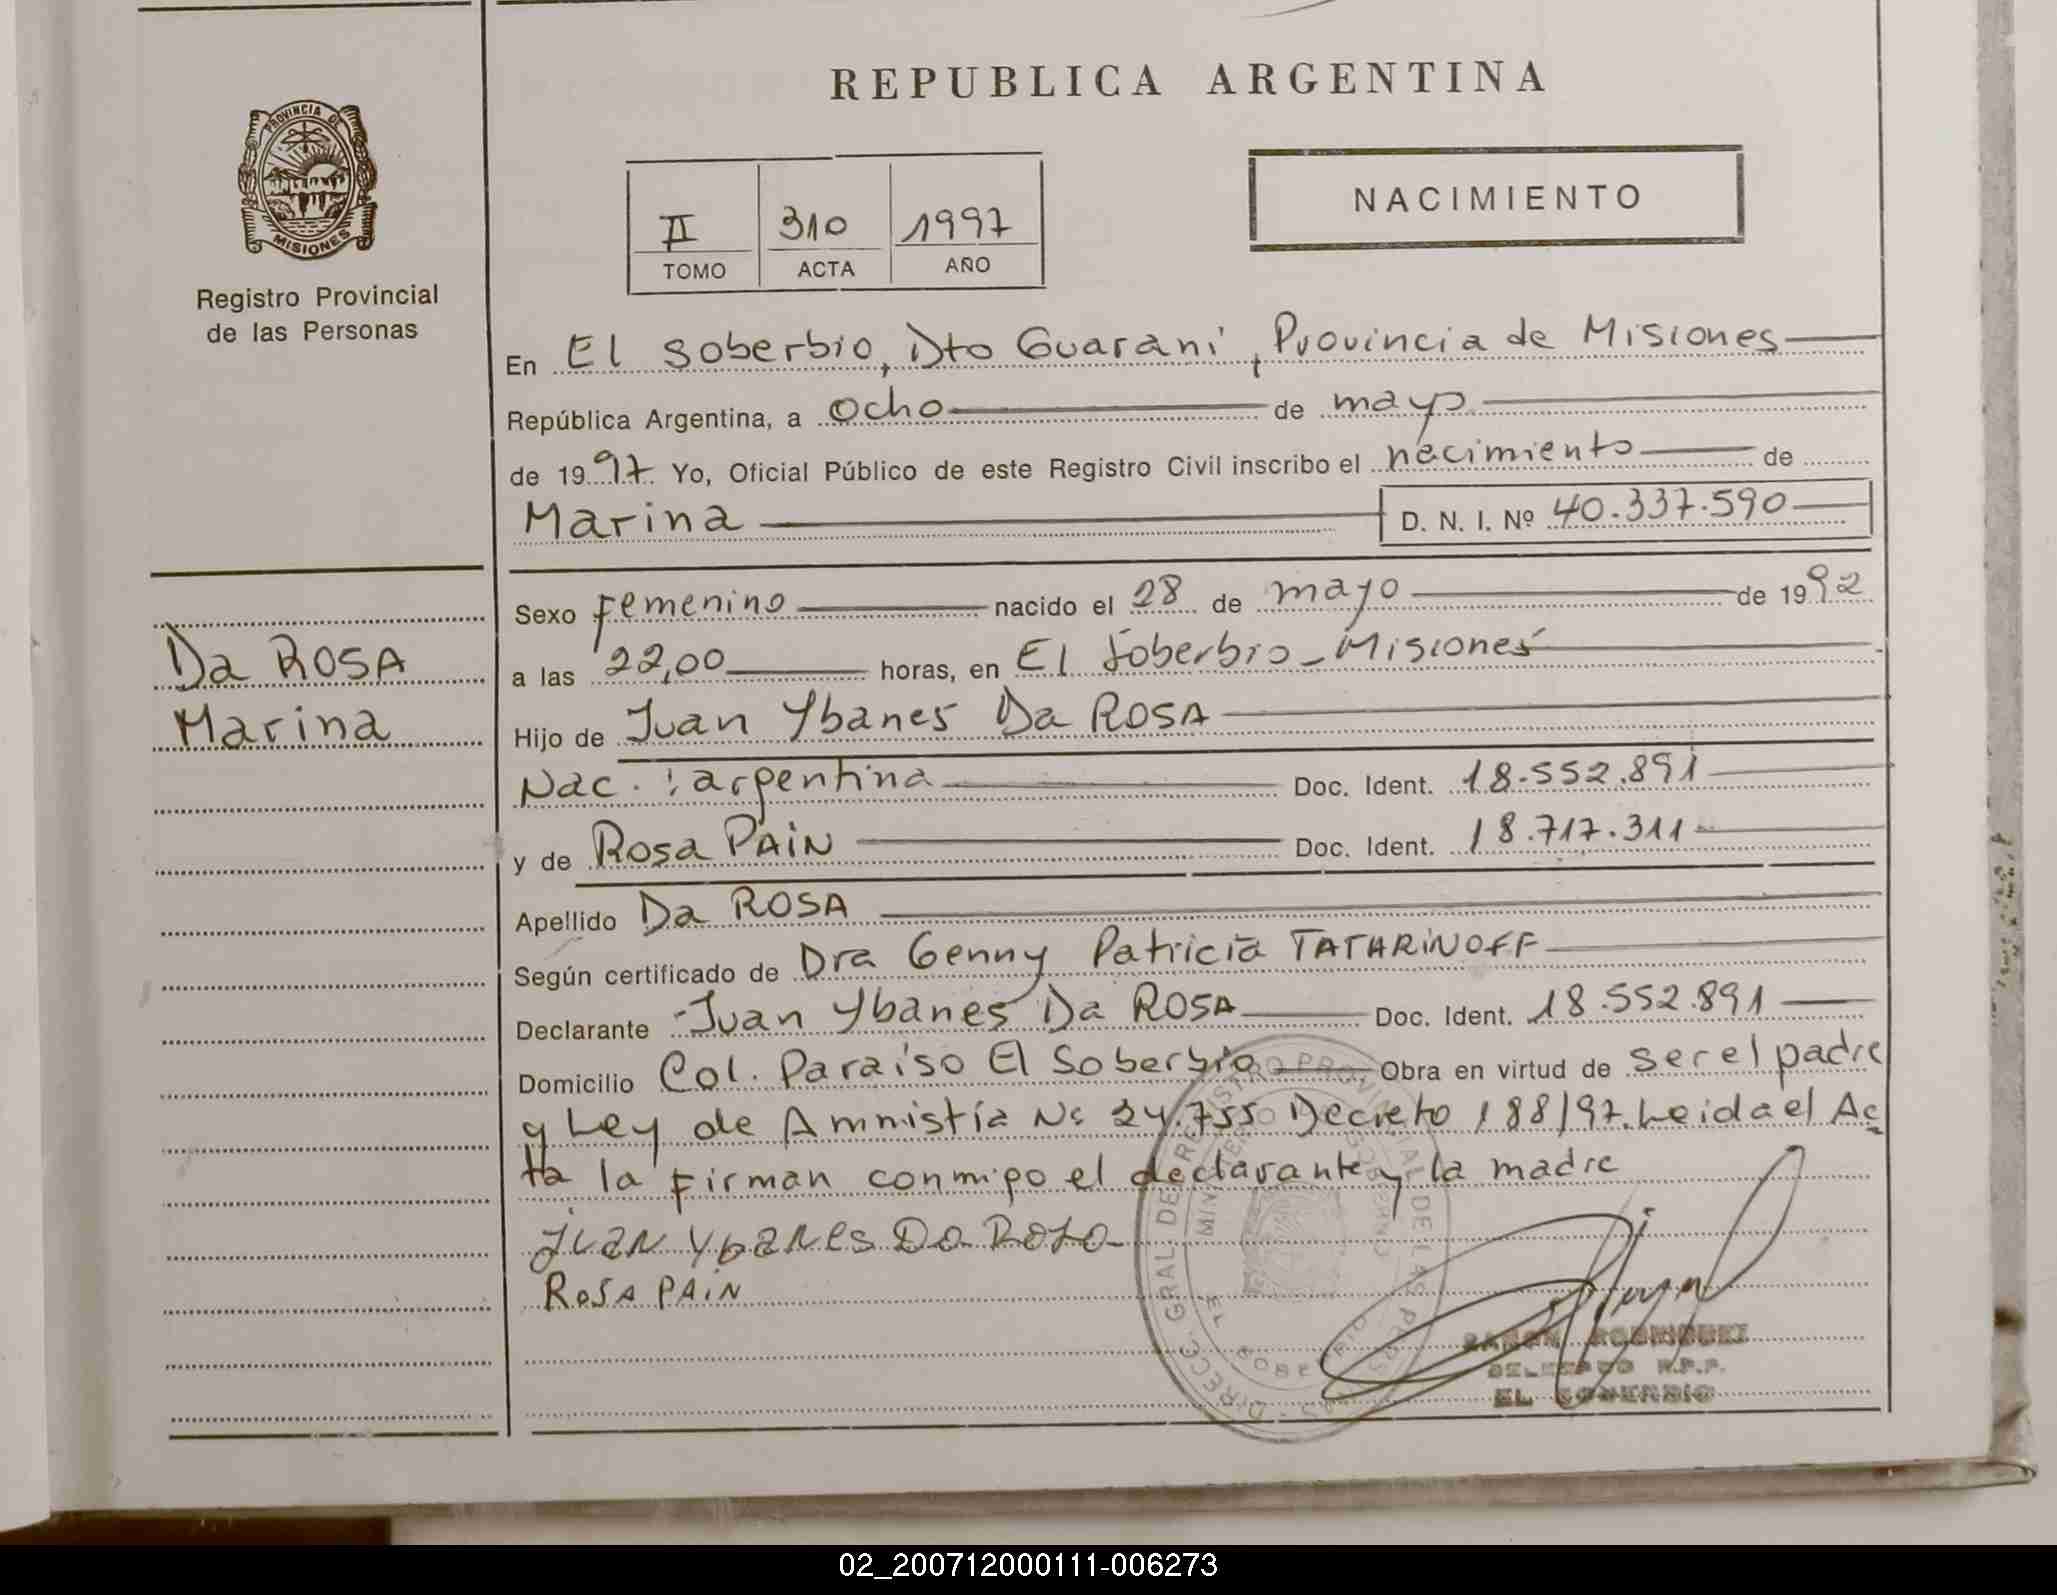 REPUBLICA ARGENTINA
PROVINCIA DE MISIONES
Registro Provincial
de las Personas
II 310 1997
TOMO ACTA AÑO
NACIMIENTO
En El Soberbio, Dto Guaraní, Provincia de Misiones
República Argentina, a ocho de mayo
de 1997 Yo, Oficial Público de este Registro Civil inscribo el nacimiento de
Marina D. N. I. Nº 40.337.590
Sexo femenino nacido el 28 de mayo de 1992
a las 22,00 horas, en El Soberbio - Misiones
Hijo de Juan Ybanes Da ROSA
Nac. : argentina Doc. Ident. 18.552.891
y de Rosa PAIN Doc. Ident. 18.717.311
Apellido Da ROSA
Según certificado de Dra Genny Patricia TATARINOFF
Declarante Juan Ybanes Da ROSA Doc. Ident. 18.552.891
Domicilio Col. Paraiso El Soberbio Obra en virtud de ser el padre
y Ley de Amnistía Nº 24.755 Decreto 188/97. Leida el Ac
ta la firman conmigo el declarante y la madre
JUAN YBANES Da ROSA
ROSA PAIN
Da ROSA
Marina
DIRECC. GRAL. DE REGISTRO PROVINCIAL DE LAS PERSONAS
MINISTERIO DE GOBIERNO
EL SOBERBIO
RAMON RODRIGUEZ
DELEGADO R.P.P.
EL SOBERBIO
02_200712000111-006273